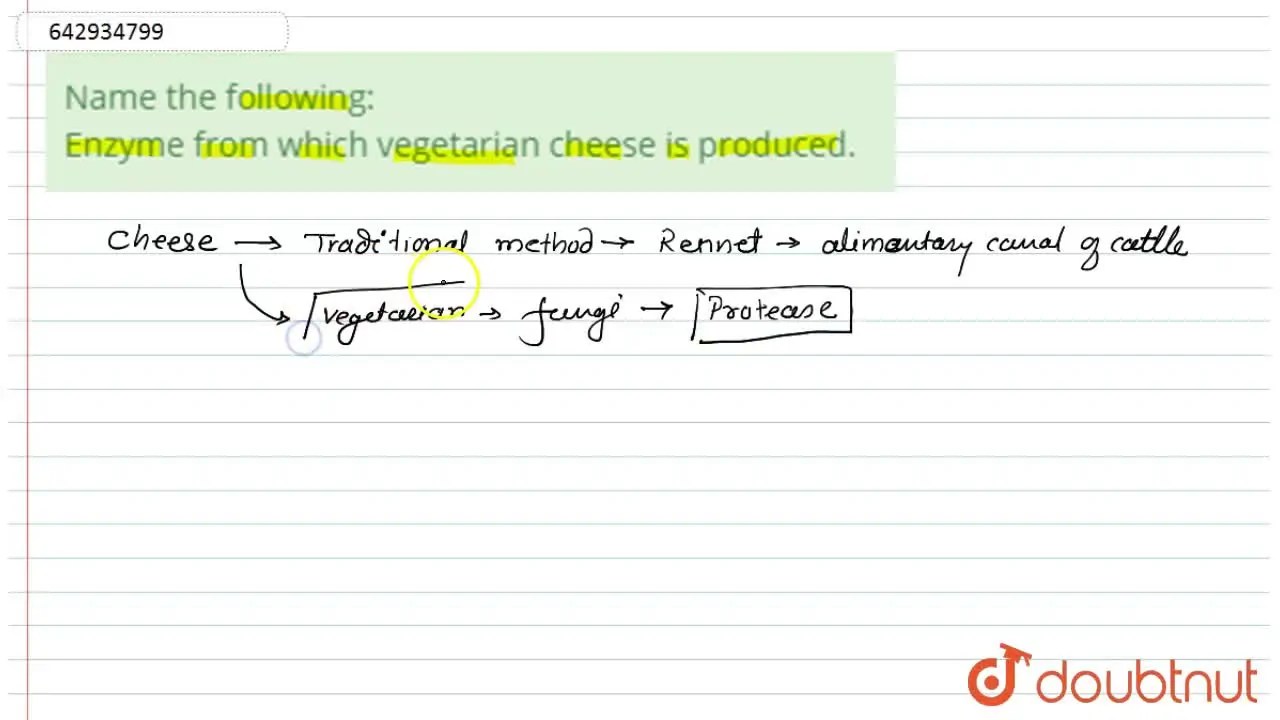 642934799
Name the following:
Enzyme from which vegetarian cheese is produced.
Cheese → Traditional method → Rennet → alimentary canal of cattle
Vegetarian → fungi → Protease
doubtnut